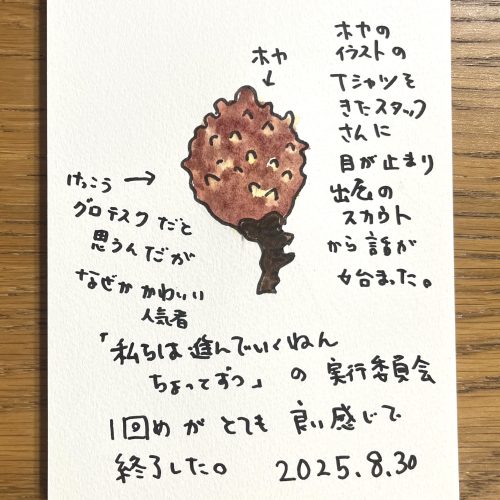 ホヤ
ホヤの
イラストの
Tシャツを
きたスタッフ
さんに
目が止まり
出店の
スカウト
から話が
始まった。
けっこう
グロテスクだと
思うんだが
なぜか かわいい
人気者
「私らは進んでいくねん
ちょってずつ」の実行委員会
1回めがとても良い感じで
終了した。 2025.8.30